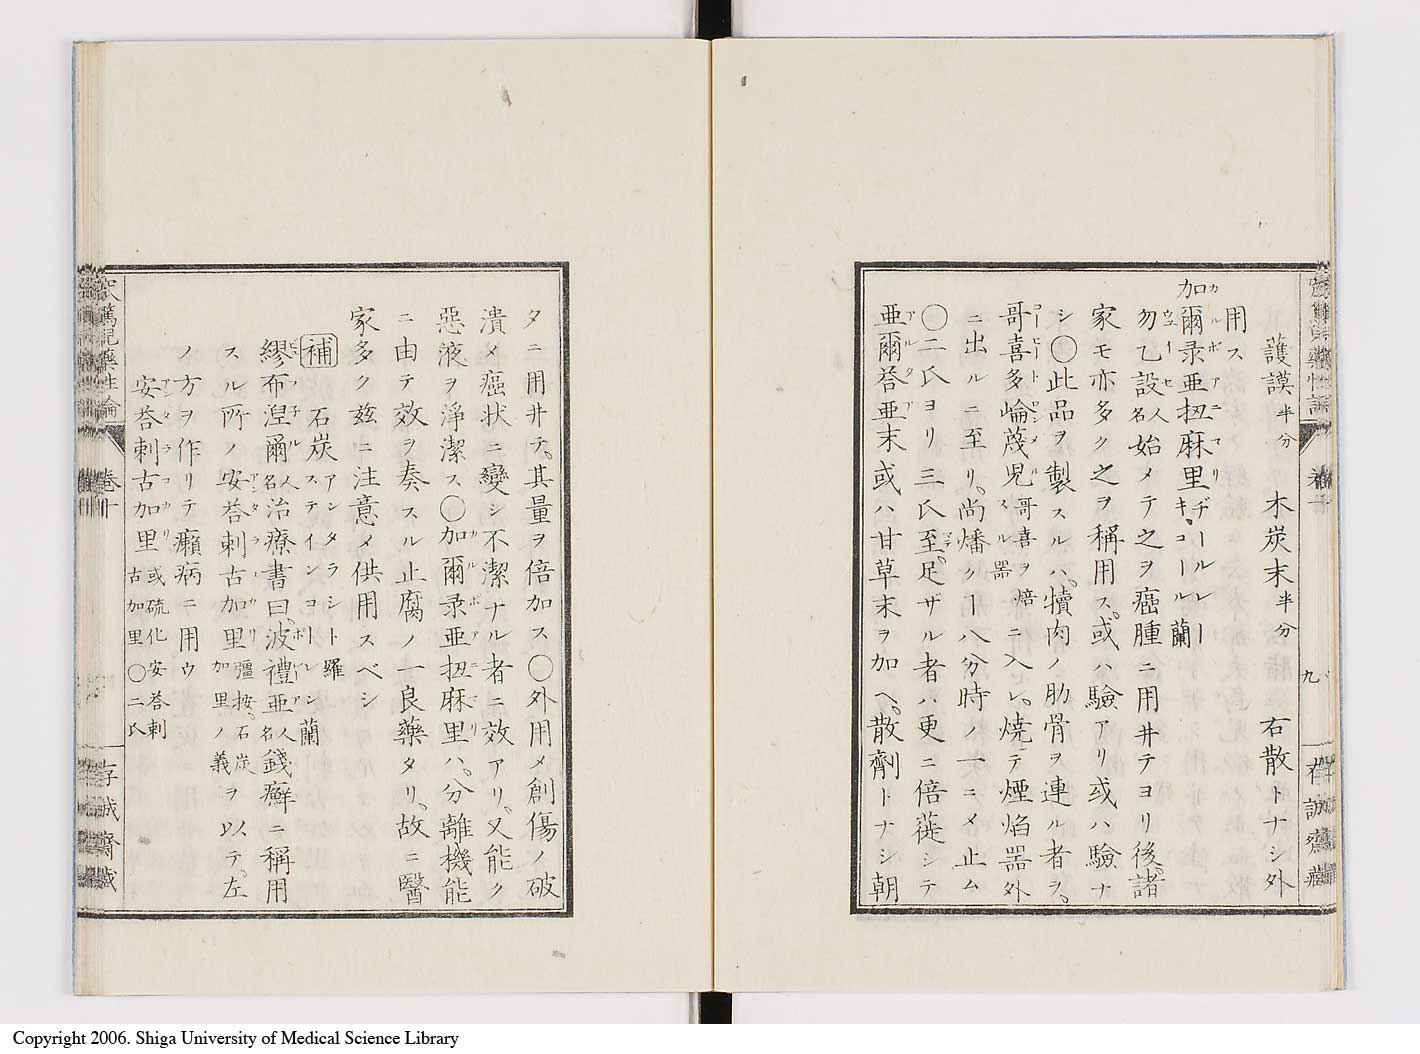 護謨半分 木炭末半分 右散トナシ外
用ス
加爾录亜扭麻里 カルボアニマリ キ、コール蘭 ヂールレーー
勿乙設人名 ウエイセ 始メテ之ヲ癌腫ニ用井テヨリ後、諸
家モ亦多ク之ヲ稱用ス、或ハ驗アリ或ハ驗ナ
シ〇此品ヲ製スルハ、犢肉ノ肋骨ヲ連ル者ヲ、
哥喜多崘蔑児 コーヒートロンメル 哥喜ヲ焙スル器ニ入レ、焼テ煙焰器外
ニ出ルニ至リ、尚燔ク一八分時ノ一ニメ止ム
〇二氏ヨリ三氏至、足ザル者ハ更ニ倍蓰シテ
亜爾答亜 アルタア 末或ハ甘草末ヲ加ヘ、散劑トナシ朝
九
存誠齋藏
タニ用井テ、其量ヲ倍加ス〇外用メ創傷ノ破
潰メ癌状ニ變シ不潔ナル者ニ效アリ、又能ク
惡液ヲ淨潔ス〇加爾录亜扭麻里 カルボアニマリ ハ、分離機能
ニ由テ效ヲ奏スル止腐ノ一良藥タリ、故ニ醫
家多ク茲ニ注意メ供用スベシ
補 石炭 アンタラシト羅 ステインコーレン蘭
繆布涅爾人名 ヒュフ子ル 治療書曰、波禮亜人名 ポレーア 錢癬ニ稱用
スル所ノ安荅剌古加里 アンタラコカリ 彊按、石炭加里ノ義 ヲ以テ、左
ノ方ヲ作リテ癩病ニ用ウ
安荅剌古加里 アンタラコカリ 或硫化安荅剌古加里〇二氏
卷十
存誠齋藏